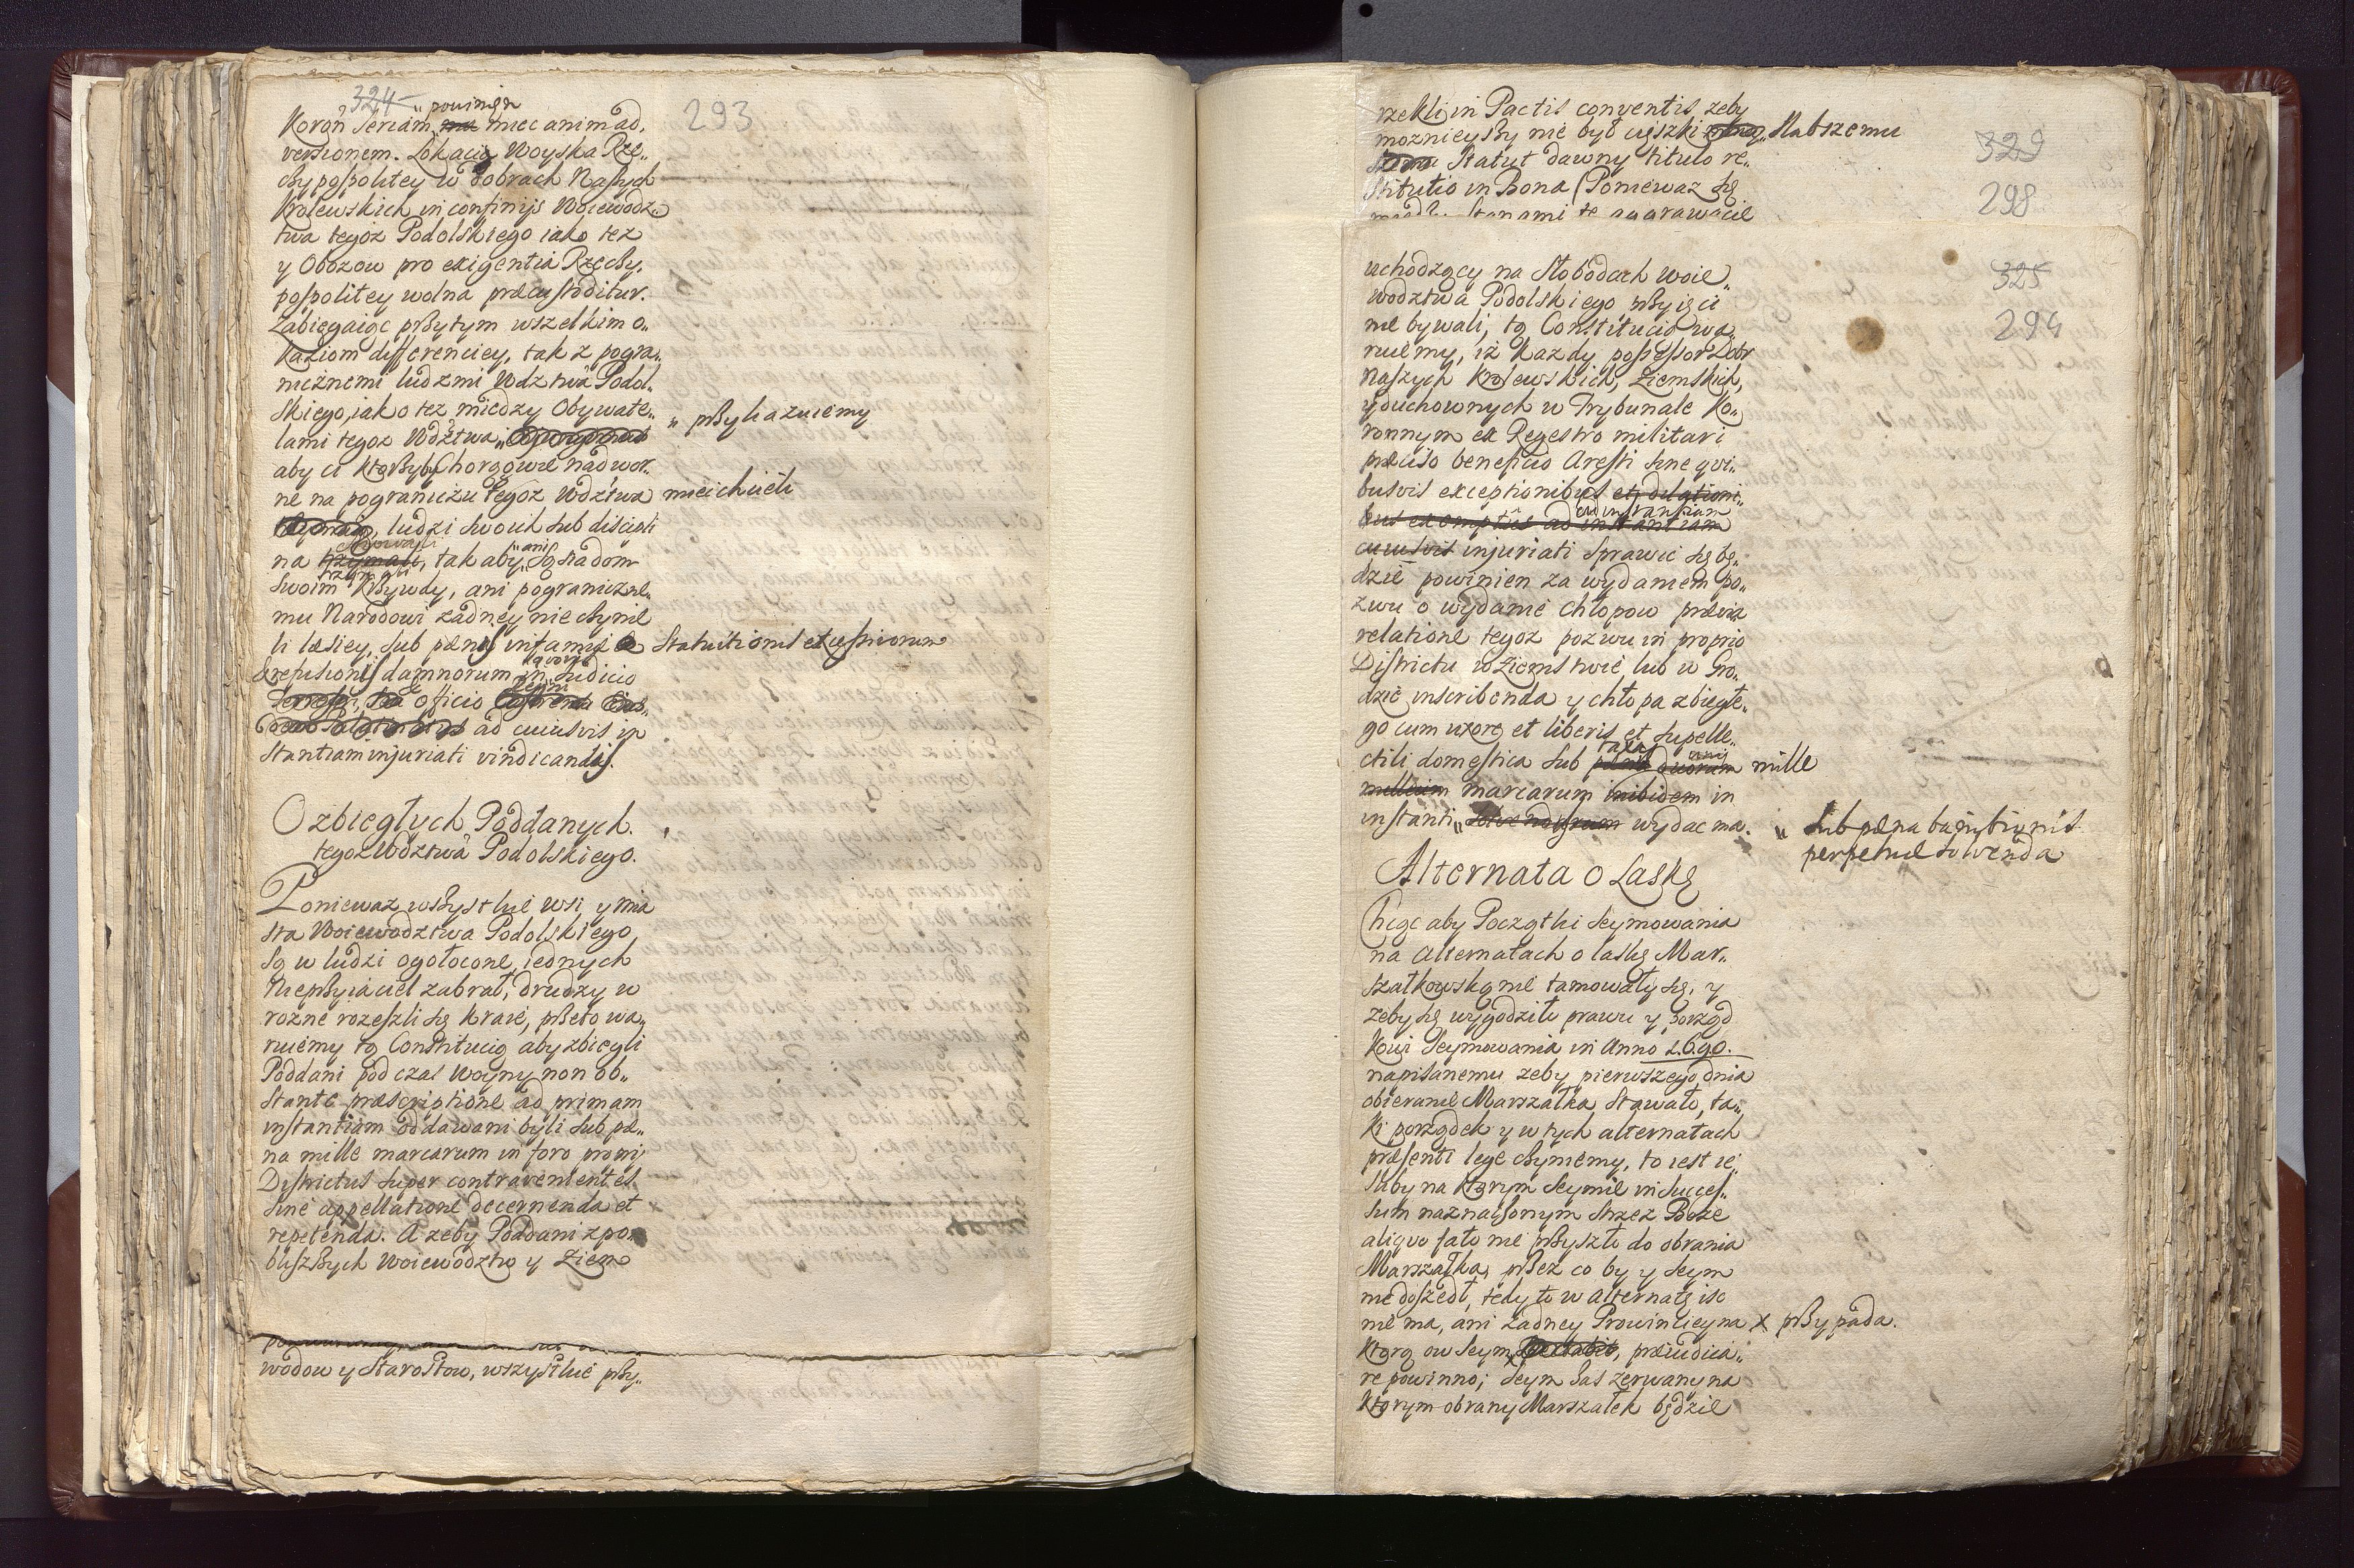 324
293
" powinien
Koroñ Seriam miec animad,
versionem. Lokacia Woyska Rze„
czypospolitey w Dobrach Naszych
Krolewskich in confinijs Woiewodz„
twa tegoz Podolskiego iako tez
y Obozow pro exigentia Rzeczy,
pospolitey wolna præcustoditur.
Zabiegaiąc przytym wszelkim o„
kaziom differenciey, tak z pogra„
nicznemi ludzmi Wdztwa Podol„
skiego, iako tez między Obywate„
lami tegoz Wdztwa, " przykazuiemy
aby ci ktorzyby Chorągwie nadwor„
ne na pograniczu tegoz Wdztwa miec chcieli
ludzi swoich sub discipli
na trzymali, tak aby " ani Sąsiadom
swoim krzywdy, ani pograniczne„
mu Narodowi zadney nie czynie
li læsiey, sub pænis infamiæ Statuitionis excessivorum
et refusionis damnorum in Judicio
officio
ad cuiusvis in
stantiam injuriati vindicandis.
O zbiegłych Poddanych.
tegoz Wdztwa Podolskiego.
Poniewaz wszystkie wsi, y mia
sta Woiewodztwa Podolskiego,
są w ludzi ogołocone, iednych
Nieprzyiaciel zabrał, drudzy w
rozne rozeszli się kraie, przeto wa„
ruiemy tą Constitucią aby zbiegli
Poddani pod czas Woyny non ob„
stante præscriptione ad primam
instantiam oddawani byli sub pæ„
na mille marcarum in foro proprij
Districtus super contravenientes
sine appellatione decernenda et
repetenda. A zeby Poddani z po„
bliszszych Woiewodztw y Ziem
wodow y Starostow, wszystkie przy„
rzekli in Pactis conventis, zeby
moznieyszy nie był cięszki słabszemu
Statut dawny titulo re„
stitutio in Bona (Poniewaz się
między Stanami te aggrawacie
329
298
325
294
uchodzący na Słobodach Woie„
wodztwa Podolskiego przyięci
nie bywali, tą Constitucią wa„
ruiemy, iż kazdy possessor Dobr
Naszych Krolewskich, Ziemskich,
y duchownych w Trybunale Ko„
ronnym ex Regestro militari
præciso beneficio Aresti sine qvi„
busvis exceptionibus et dilationi„
bus exemptis ad instantiam
ad instantiam
cuiusvis injuriati sprawic się bę„
dzie powinien za wydaniem po„
zwu o wydanie chłopow prævia
relatione tegoz pozwu in proprio
Districtu w Ziemstwie, lub w Gro„
dzie inscribenda y chłopa zbiegłe„
go cum uxore et liberis et supelle„
ctili domestica sub taxa duorum mille
millium marcarum inibidem in
instanti „ wydac ma. „ sub pæna banitionis
perpetuæ solvenda
Alternata o Laskę
Chcąc aby Początki Seymowania
na alternatach o laskę Mar„
szałkowską nie tamowały się, y
zeby się wygodziło prawu y porząd
kowi Seymowania in Anno 1690.
napisanemu zeby pierwszego dnia
obieranie Marszałka stawało, ta„
ki porządek y w tych alternatach
præsenti lege czyniemy, to iest ie„
sliby na ktorym Seymie in succes„
sum naznaczonym strzez Boze
aliquo fato nie przyszło do obrania
Marszałka, przez co by y Seym
nie doszedł, tedy to w Alternatę isc
nie ma, ani zadney Prowincieyna x przypada.
ktorą ow Seym, præiudica„
re powinno; Seym zas zerwany na
ktorym obrany Marszałek będzie